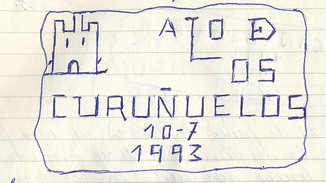 ALTO DE
LOS
CURUÑUELOS
10-7
1993